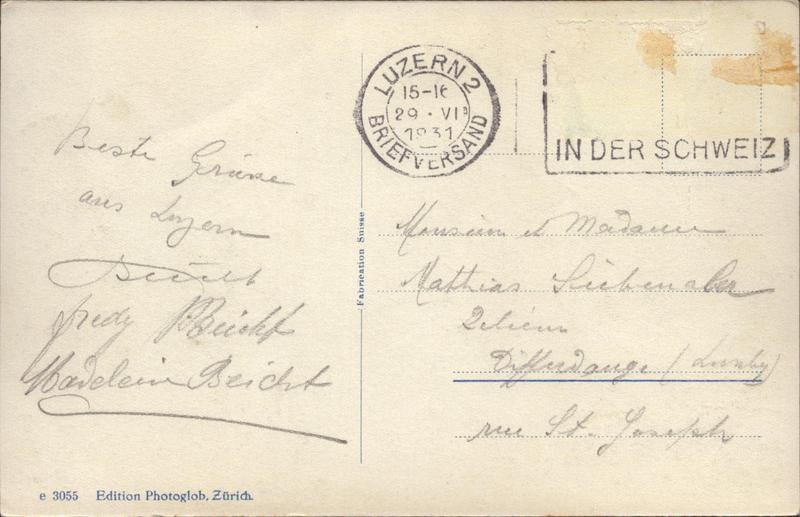 LUZERN 2
15-16
29 · VII
1931
BRIEFVERSAND
IN DER SCHWEIZ
Beste Grüsse
aus Luzern
Beicht
fredy Beicht
Madelein Beicht
Fabrication Suisse
Monsieur et Madame
Mathias
Differdange (Luxbg)
rue St. Joseph
e 3055 Edition Photoglob, Zürich.